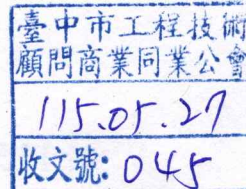 臺中市工程技術
顧問商業同業公會
115.05.27
收文號:045